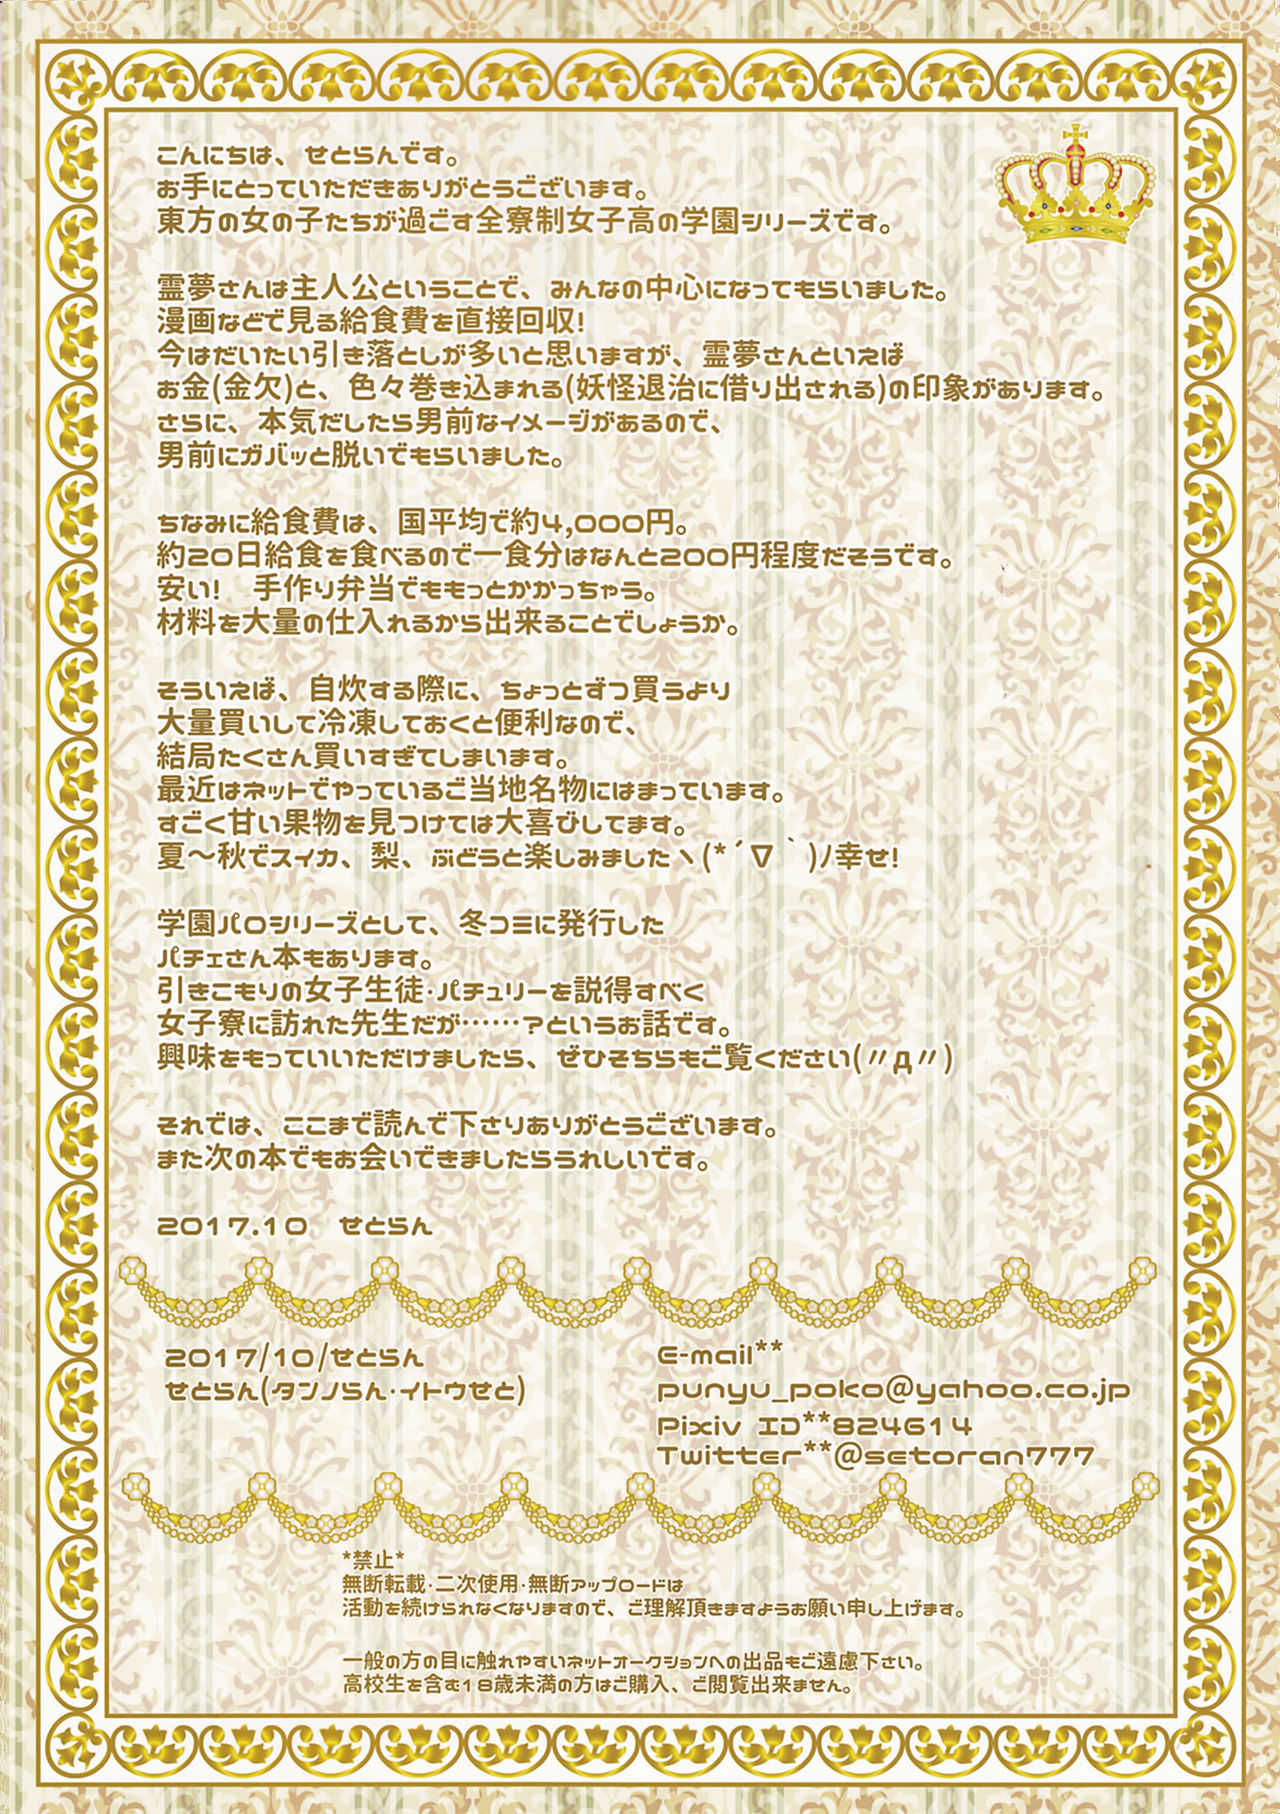 こんにちは、せとらんです。
お手にとっていただきありがとうございます。
東方の女の子たちが過ごす全寮制女子高の学園シリーズです。
霊夢さんは主人公ということで、みんなの中心になってもらいました。
漫画などで見る給食費を直接回収!
今はだいたい引き落としが多いと思いますが、霊夢さんといえば
お金(金欠)と、色々巻き込まれる(妖怪退治に借り出される)の印象があります。
さらに、本気だしたら男前なイメージがあるので、
男前にガバッと脱いでもらいました。
ちなみに給食費は、国平均で約4,000円。
約20日給食を食べるので一食分はなんと200円程度だそうです。
安い!　手作り弁当でももっとかかっちゃう。
材料を大量の仕入れるから出来ることでしょうか。
そういえば、自炊する際に、ちょっとずつ買うより
大量買いして冷凍しておくと便利なので、
結局たくさん買いすぎてしまいます。
最近はネットでやっているご当地名物にはまっています。
すごく甘い果物を見つけては大喜びしてます。
夏〜秋でスイカ、梨、ぶどうと楽しみましたヽ(*´∇｀)ﾉ幸せ!
学園パロシリーズとして、冬コミに発行した
パチェさん本もあります。
引きこもりの女子生徒・パチュリーを説得すべく
女子寮に訪れた先生だが……?というお話です。
興味をもっていいただけましたら、ぜひそちらもご覧ください(〃д〃)
それでは、ここまで読んで下さりありがとうございます。
また次の本でもお会いできましたらうれしいです。
2017.10　せとらん
2017/10/せとらん
せとらん(タンノらん・イトウせと)
E-mail**
punyu_poko@yahoo.co.jp
Pixiv ID**824614
Twitter**@setoran777
*禁止*
無断転載・二次使用・無断アップロードは
活動を続けられなくなりますので、ご理解頂きますようお願い申し上げます。
一般の方の目に触れやすいネットオークションへの出品もご遠慮下さい。
高校生を含む18歳未満の方はご購入、ご閲覧出来ません。